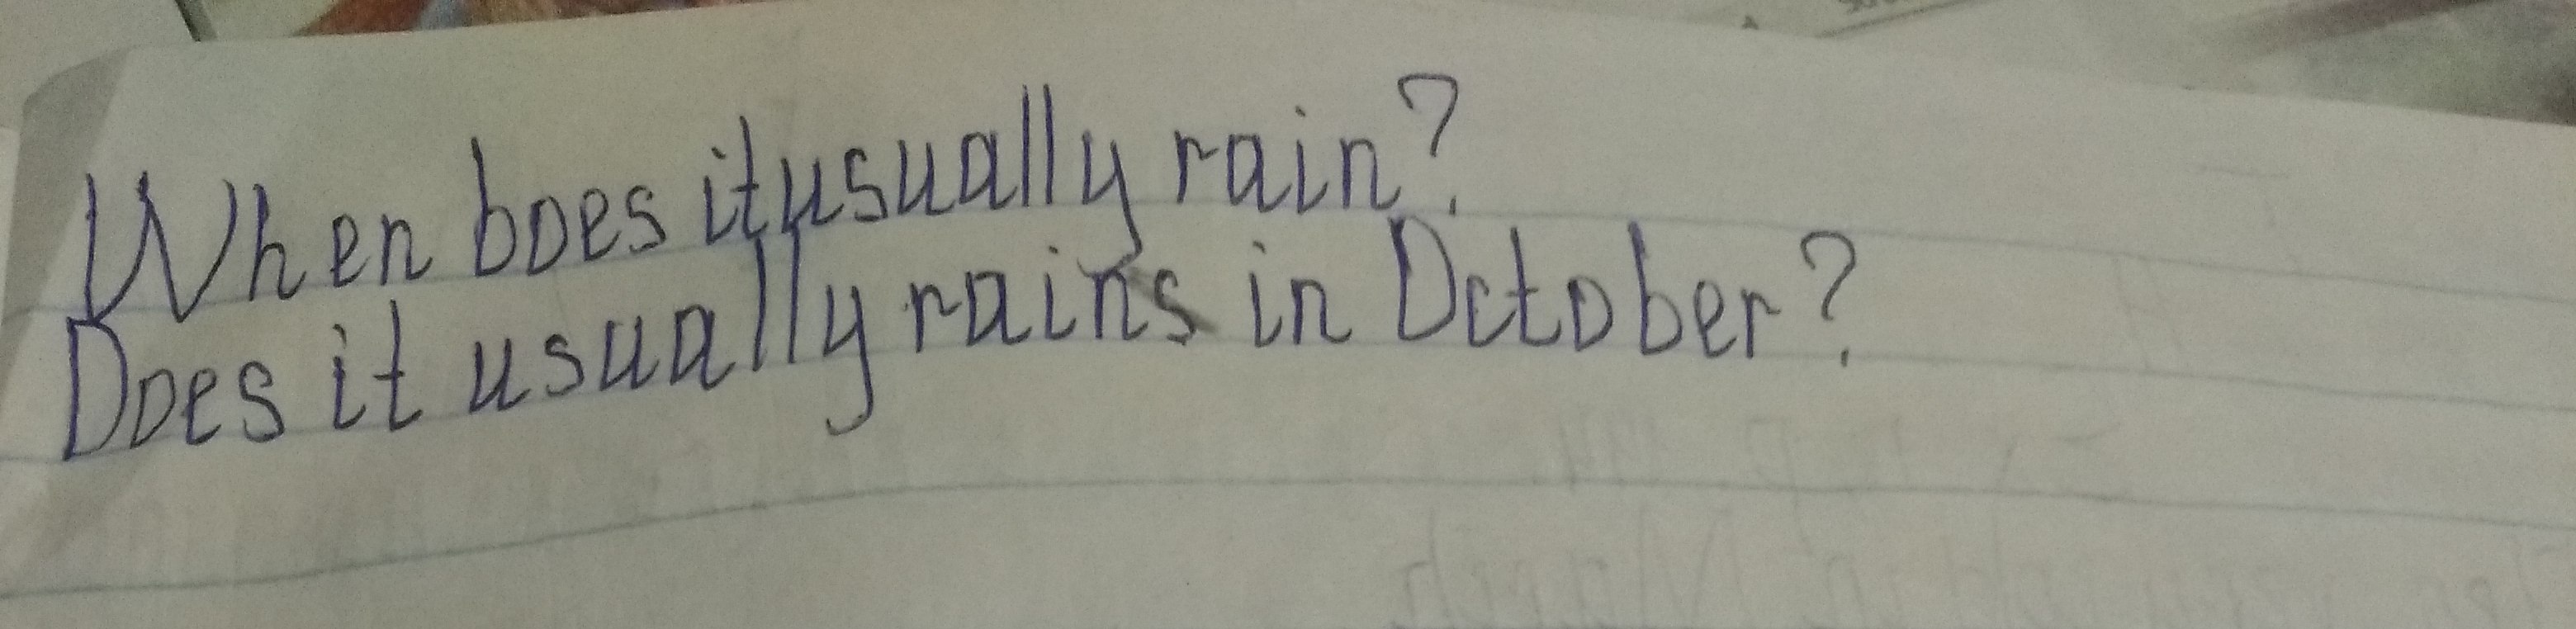 When boes it usually rain?
Does it usually rains in October?